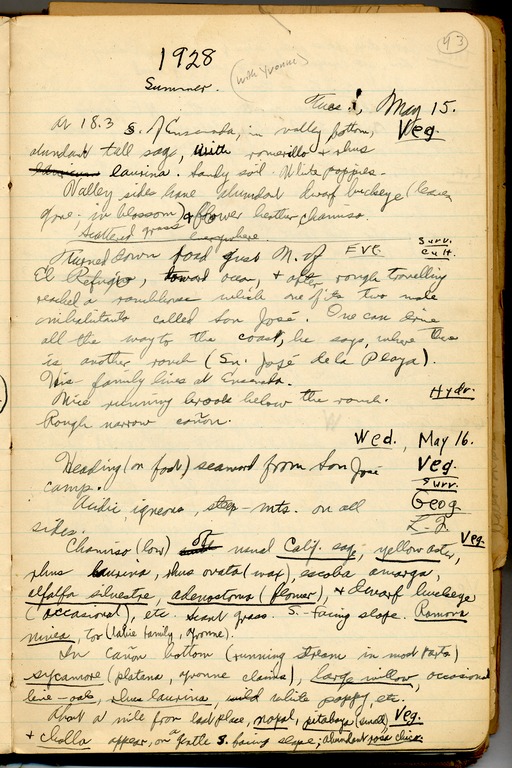 93
1928
Summer.
(with Yvonne)
Tues., May 15.
At 18.3 S. of Ensenada, in valley bottom, Veg.
abundant tall sage, with romerillo & rhus
laurina. Sandy soil. White poppies.
Valley sides have abundant dwarf buckeye (leaves
gone. in blossom) & flower heather chamiso.
Scattered grass everywhere.
Turned down road just N. of EVE Surv.
Cult.
El Refugio, toward ocean, & after rough travelling
reached a ranchhouse which one of its two male
inhabitants called San José. One can drive
all the way to the coast, he says, where there
is another ranch (Sn. José de la Playa).
His family lives at Ensenada.
Nice running brook below the ranch. Hydr.
Rough narrow cañon.
Wed., May 16.
Heading (on foot) seaward from San José Veg.
camp. Surv.
Acidic igneous, steep mts. on all Geog.
sides.
Chamiso (low) usual Calif. sage, yellow aster, Veg.
rhus laurina, rhus ovata (wax), escoba amarga,
alfalfa silvestre, adenostoma (flower), & dwarf buckeye
(occasional), etc. Scant grass. S.-facing slope. Ramona
nivea, too (labiae family, Yvonne).
In cañon bottom (running stream in most parts)
sycamore (platana, Yvonne claims), large willow, occasional
live-oak, rhus laurina, wild white poppy, etc.
About a mile from last place, nopal, pitahaya (small) Veg.
& cholla appear, on a gentle S. facing slope; abundant rosa